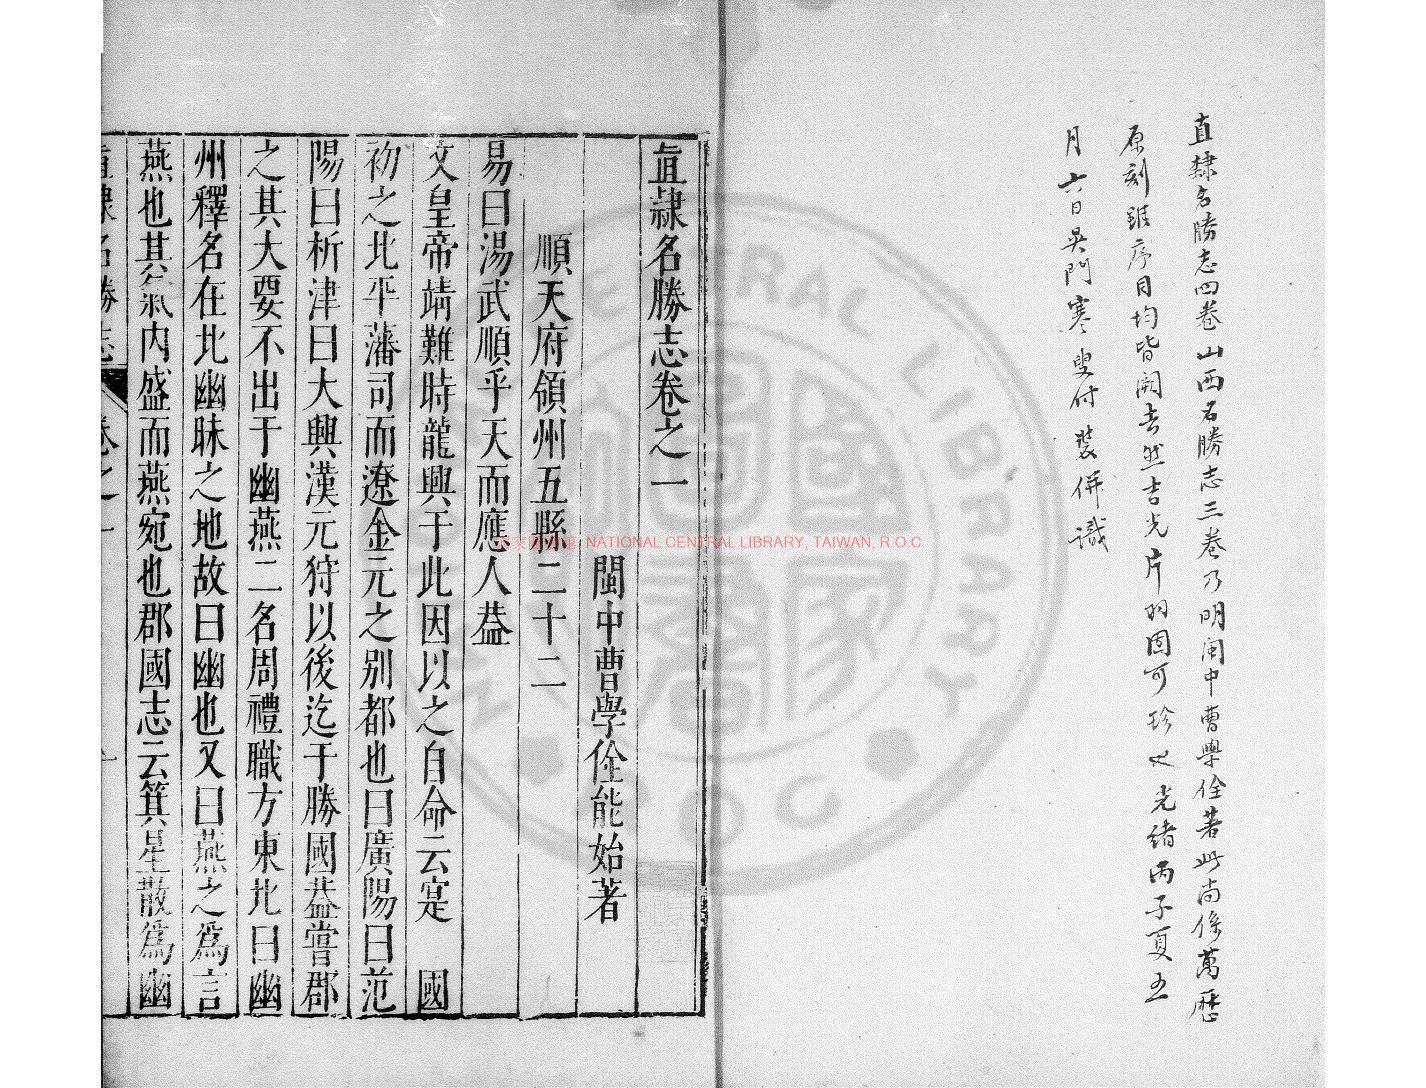 直隸名勝志四卷山西名勝志三卷乃明閩中曹學佺著此尚係萬歷
原刻雖序目均皆闕去然吉光片羽固可珍也光緒丙子夏五
月六日吳門寒叟付裝併識
直隸名勝志卷之一
閩中曹學佺能始著
順天府領州五縣二十二
易曰湯武順乎天而應人葢
文皇帝靖難時龍興于此因以之自命云寔 國
初之北平藩司而遼金元之别都也曰廣陽曰范
陽曰析津曰大興漢元狩以後迄于勝國葢嘗郡
之其大要不出于幽燕二名周禮職方東北曰幽
州釋名在北幽昧之地故曰幽也又曰燕之為言
燕也其氣内盛而燕宛也郡國志云箕星散為幽
直隸名勝志 卷之一 一
NATIONAL CENTRAL LIBRARY, TAIWAN, R.O.C